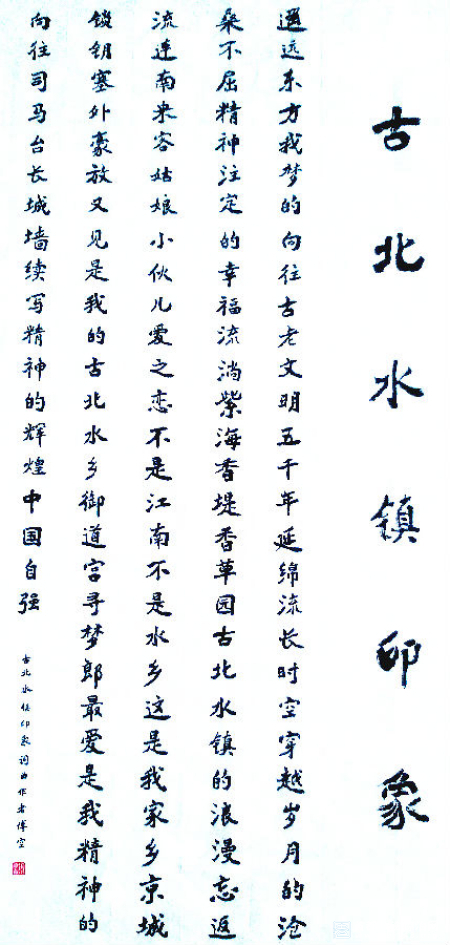 古北水镇印象
遥远东方我梦的向往古老文明五千年延绵流长时空穿越岁月的沧
桑不屈精神注定的幸福流淌紫海香堤香草园古北水镇的浪漫忘返
流连南来客姑娘小伙儿爱之恋不是江南不是水乡这是我家乡京城
锁钥塞外豪放又见是我的古北水乡御道宫寻梦郎最爱是我精神的
向往司马台长城墙续写精神的辉煌中国自强
古北水镇印象词曲作者傅空